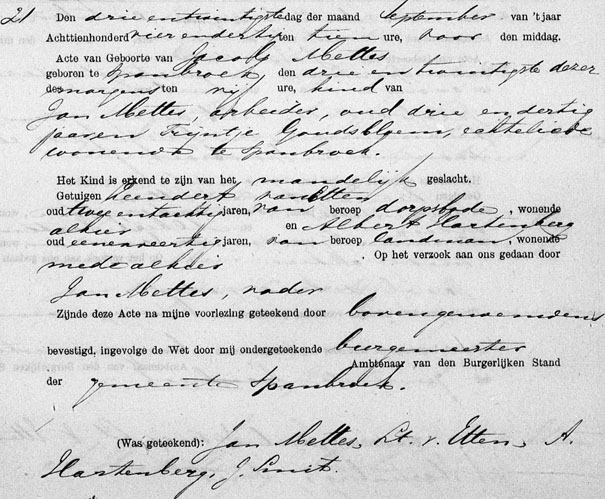 21 Den drie en twintigste dag der maand September van 't jaar
Achttienhonderd vier en dertig ten tien ure, voor den middag.
Acte van Geboorte van Jacob Mettes
geboren te Spanbroek, den drie en twintigste dezer
des morgens ten vijf ure, kind van
Jan Mettes, arbeider, oud drie en dertig
jaar en Trijntje Goudsbloem, echtelieden
wonende te Spanbroek.
Het Kind is erkend te zijn van het mandelijk geslacht.
Getuigen Leendert van Etten
oud twee en tachtig jaren, van beroep dorpsbode, wonende
alhier en Albert Hartenberg
oud een en veertig jaren, van beroep landman, wonende
mede alhier Op het verzoek aan ons gedaan door
Jan Mettes, vader
Zijnde deze Acte na mijne voorlezing geteekend door bovengenoemden
bevestigd, ingevolge de Wet door mij ondergeteekende burgemeester
Ambtenaar van den Burgerlijken Stand
der gemeente Spanbroek.
(Was geteekend): Jan Mettes, Lt. v. Etten, A.
Hartenberg, J. Smit.